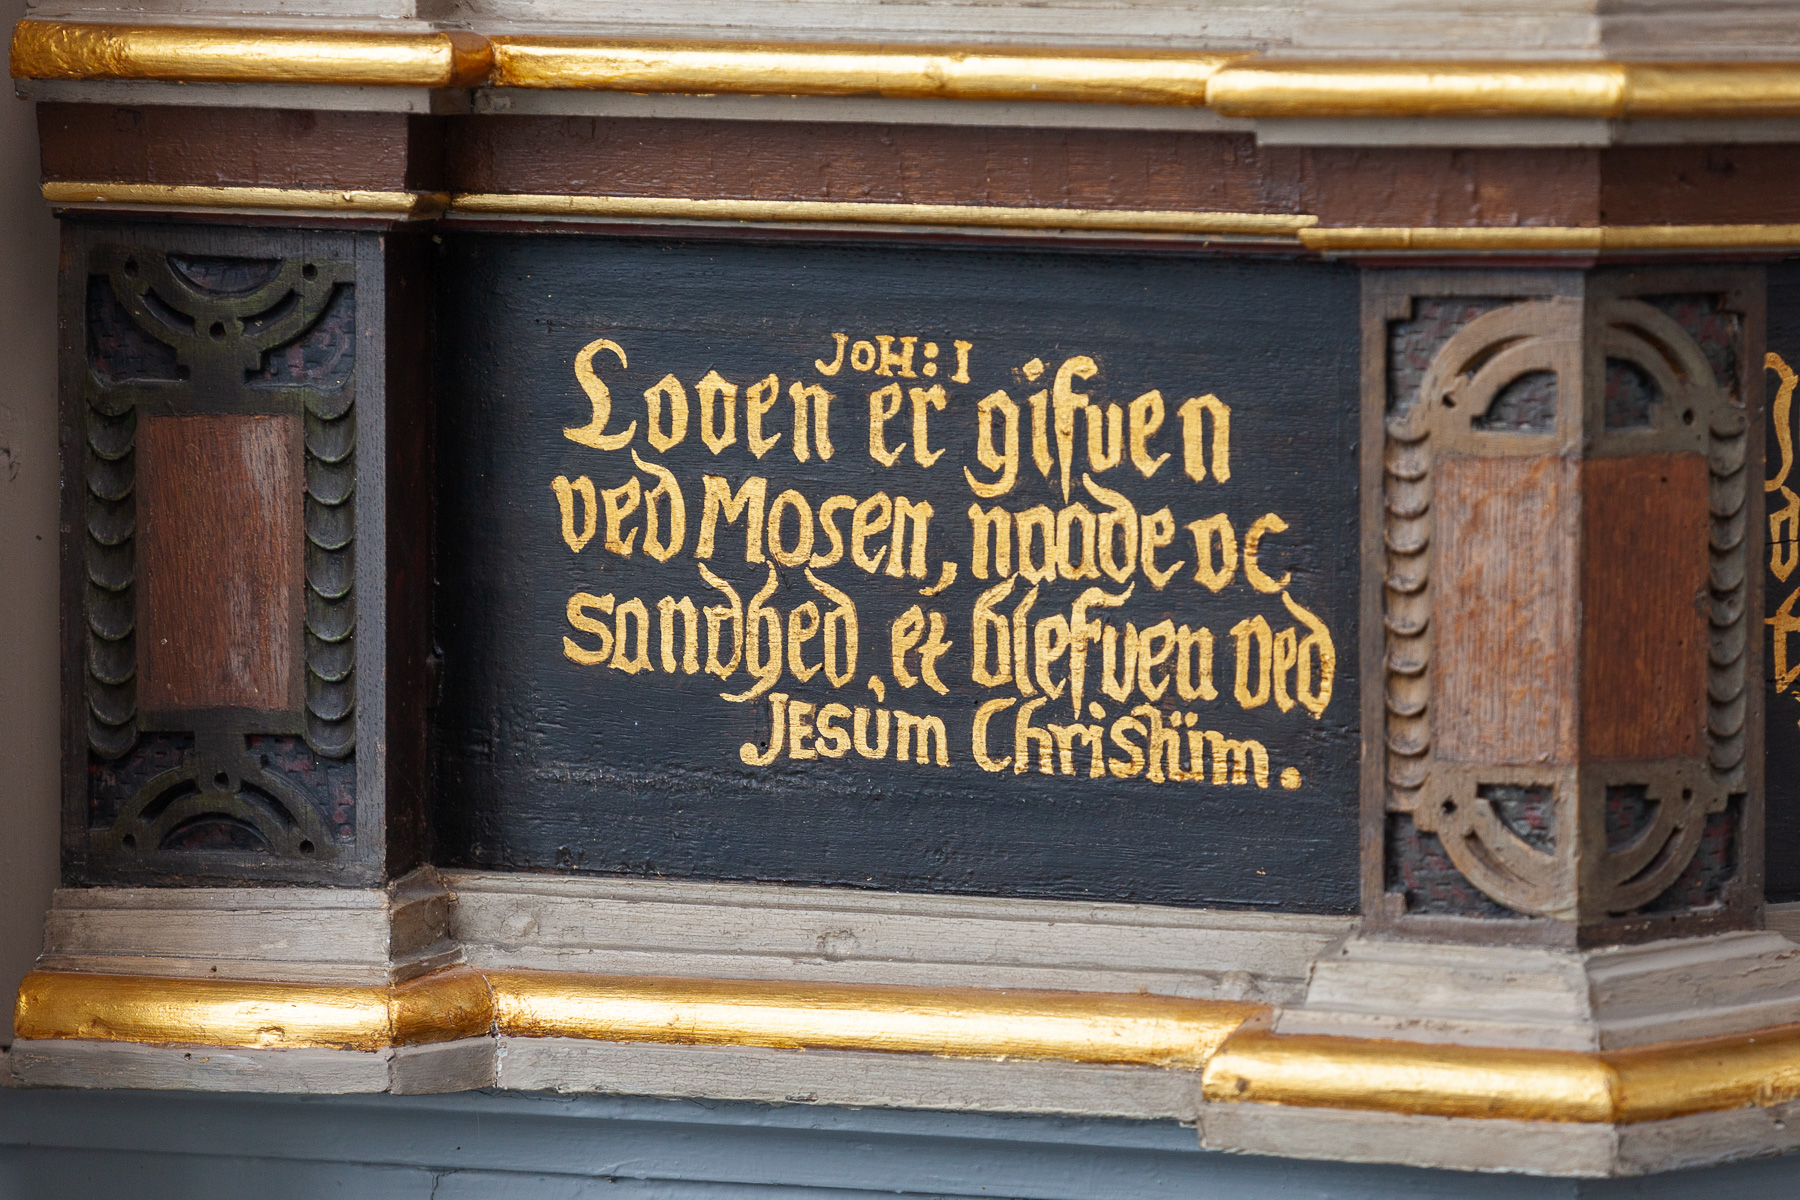 JOH: I
Looen er gifven
ved MOSEN, naade oc
sandhed, et blefven ved
JESUM Christum.